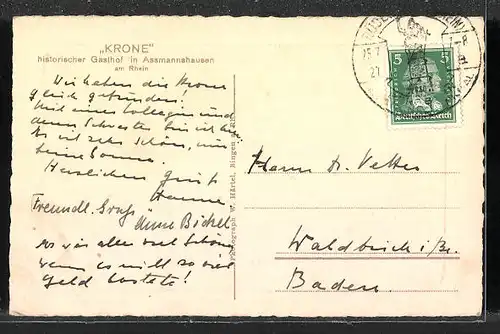 „KRONE"
historischer Gasthof in Assmannshausen
am Rhein
Wir haben die Krone
gleich gefunden!
Mit einer Kollegin und
deren Schwester bin ich hier
Es ist sehr schön, nur
keine Sonne.
Herzlichen Gruß
Hanne
Freundl. Gruß
Anne Bickel
Es wär alles viel schöner
wenn es nicht so viel
Geld kostete!
Kupferphotograph W. Härtel, Bingen a. Rh.
5 5
Deutsches Reich
27
Herrn Dr. Vetter
Waldkirch i/Br.
Baden.